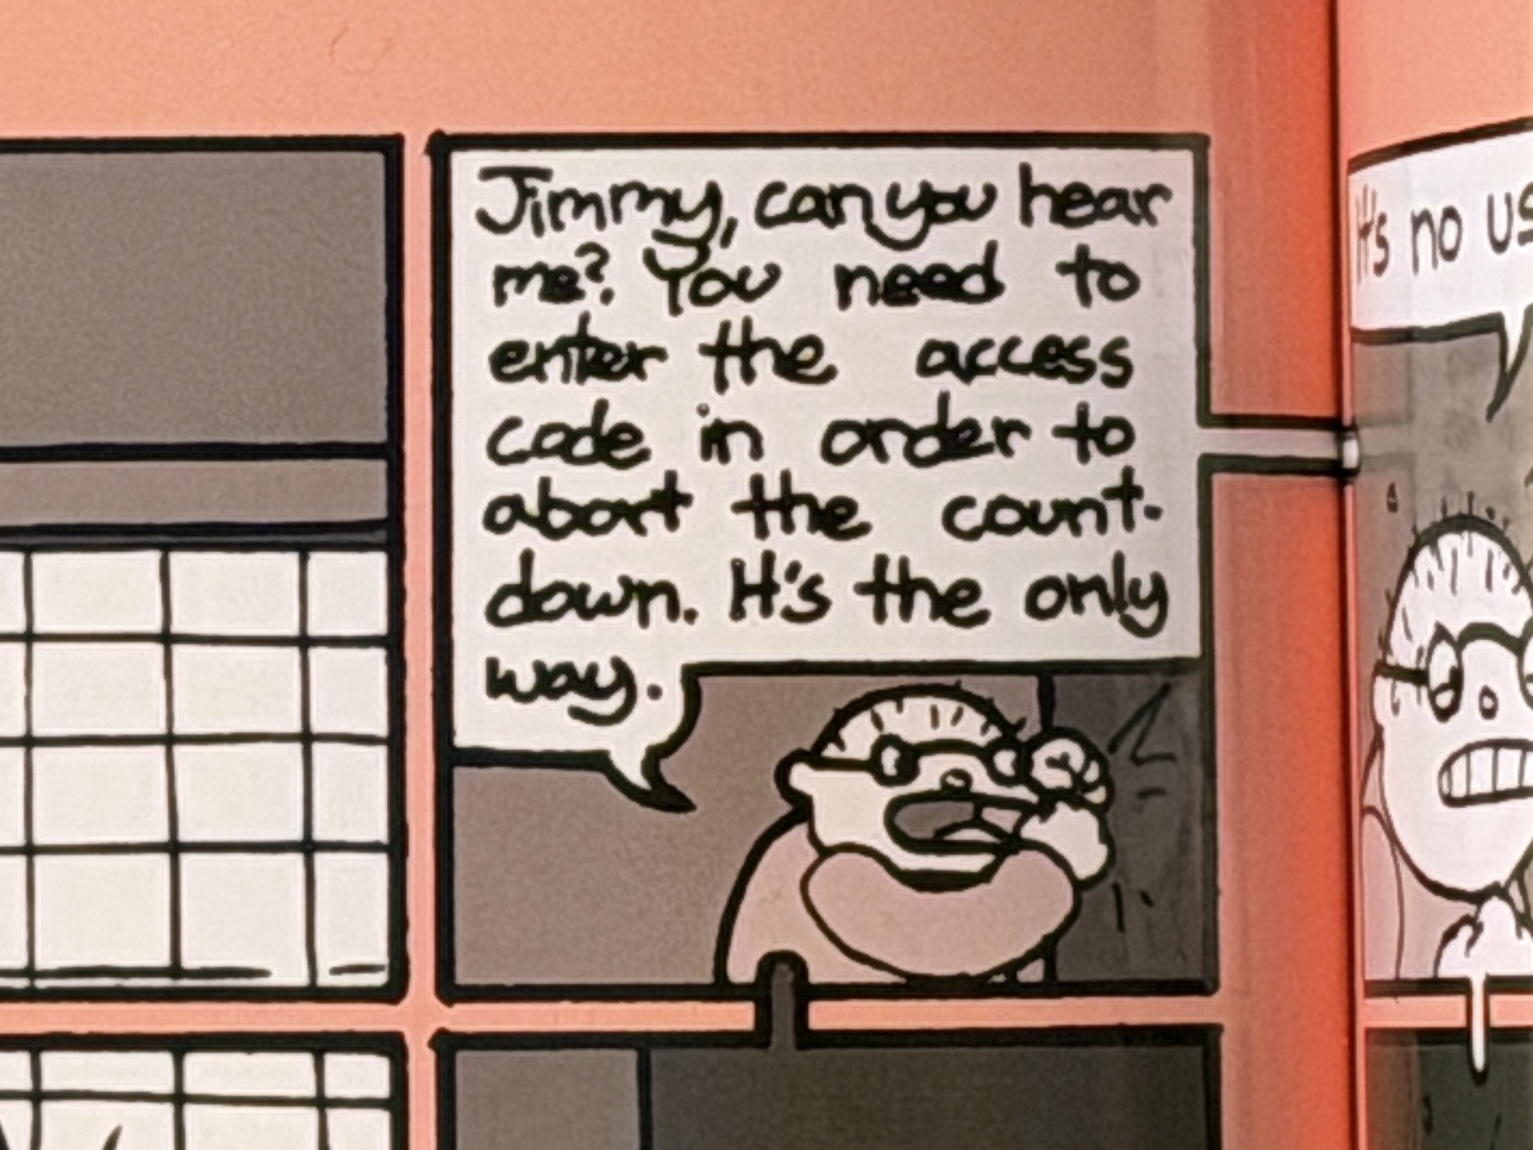 Jimmy, can you hear
me? You need to
enter the access
code in order to
abort the count-
down. It's the only
way.
It's no